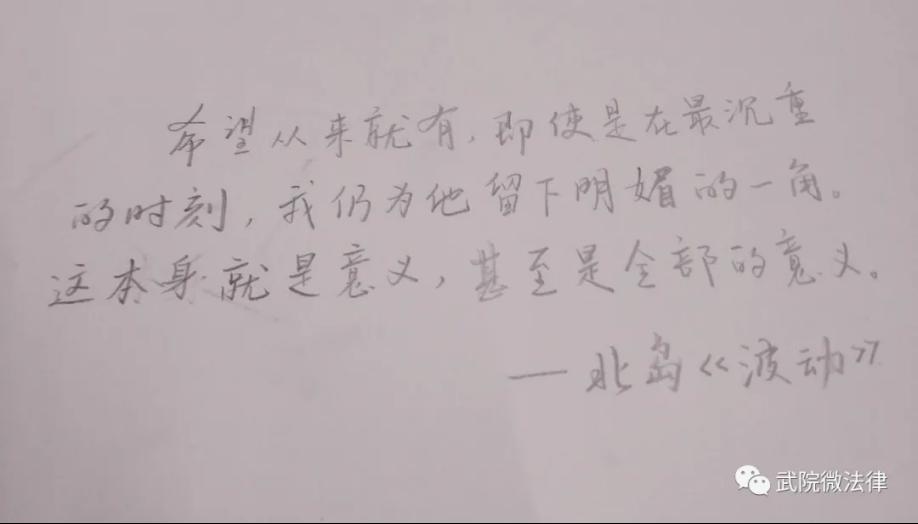 希望从来就有,即使是在最沉重
的时刻,我仍为他留下明媚的一角。
这本身就是意义,甚至是全部的意义。
——北岛《波动》
武院微法律